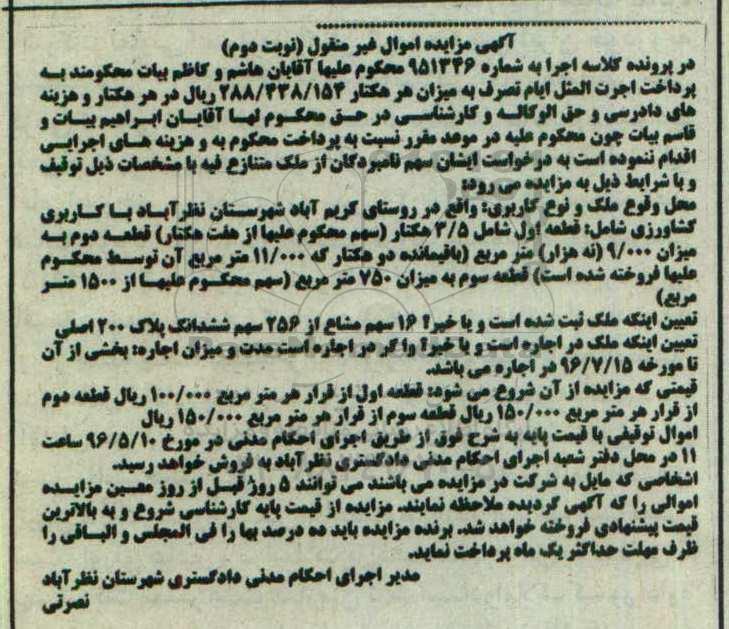 آگهی مزایده اموال غیر منقول (نوبت دوم)
در پرونده کلاسه اجرا به شماره ۹۵۱۳۴۶ محکوم علیها آقایان هاشم و کاظم بیات محکومند به
پرداخت اجرت المثل ایام تصرف به میزان هر هکتار ۲۸۸/۴۳۸/۱۵۴ ریال در هر هکتار و هزینه
های دادرسی و حق الوکاله و کارشناسی در حق محکوم لها آقایان ابراهیم بیات و
قاسم بیات چون محکوم علیه در موعد مقرر نسبت به پرداخت محکوم به و هزینه های اجرایی
اقدام ننموده است به درخواست ایشان سهم نامبردگان از ملک متنازع فیه با مشخصات ذیل توقیف
و با شرایط ذیل به مزایده می رود:
محل وقوع ملک و نوع کاربری: واقع در روستای کریم آباد شهرستان نظرآباد با کاربری
کشاورزی شامل: قطعه اول شامل ۳/۵ هکتار (سهم محکوم علیها از هفت هکتار) قطعه دوم به
میزان ۹/۰۰۰ (نه هزار) متر مربع (باقیمانده دو هکتار که ۱۱/۰۰۰ متر مربع آن توسط محکوم
علیها فروخته شده است) قطعه سوم به میزان ۷۵۰ متر مربع (سهم محکوم علیها از ۱۵۰۰ متر
مربع)
تعیین اینکه ملک ثبت شده است و یا خیر؟ ۱۶ سهم مشاع از ۲۵۶ سهم ششدانگ پلاک ۲۰۰ اصلی
تعیین اینکه ملک در اجاره است و یا خیر؟ واگر در اجاره است مدت و میزان اجاره: بخشی از آن
تا مورخه ۹۶/۷/۱۵ در اجاره می باشد.
قیمتی که مزایده از آن شروع می شود: قطعه اول از قرار هر متر مربع ۱۰۰/۰۰۰ ریال قطعه دوم
از قرار هر متر مربع ۱۵۰/۰۰۰ ریال قطعه سوم از قرار هر متر مربع ۱۵۰/۰۰۰ ریال
اموال توقیفی با قیمت پایه به شرح فوق از طریق اجرای احکام مدنی در مورخ ۹۶/۵/۱۰ ساعت
۱۱ در محل دفتر شعبه اجرای احکام مدنی دادگستری نظرآباد به فروش خواهد رسید.
اشخاصی که مایل به شرکت در مزایده می باشند می توانند ۵ روز قبل از روز معین مزایده
اموالی را که آگهی گردیده ملاحظه نمایند. مزایده از قیمت پایه کارشناسی شروع و به بالاترین
قیمت پیشنهادی فروخته خواهد شد. برنده مزایده باید ده درصد بها را فی المجلس و الباقی را
ظرف مهلت حداکثر یک ماه پرداخت نماید.
مدیر اجرای احکام مدنی دادگستری شهرستان نظرآباد
نصرتی